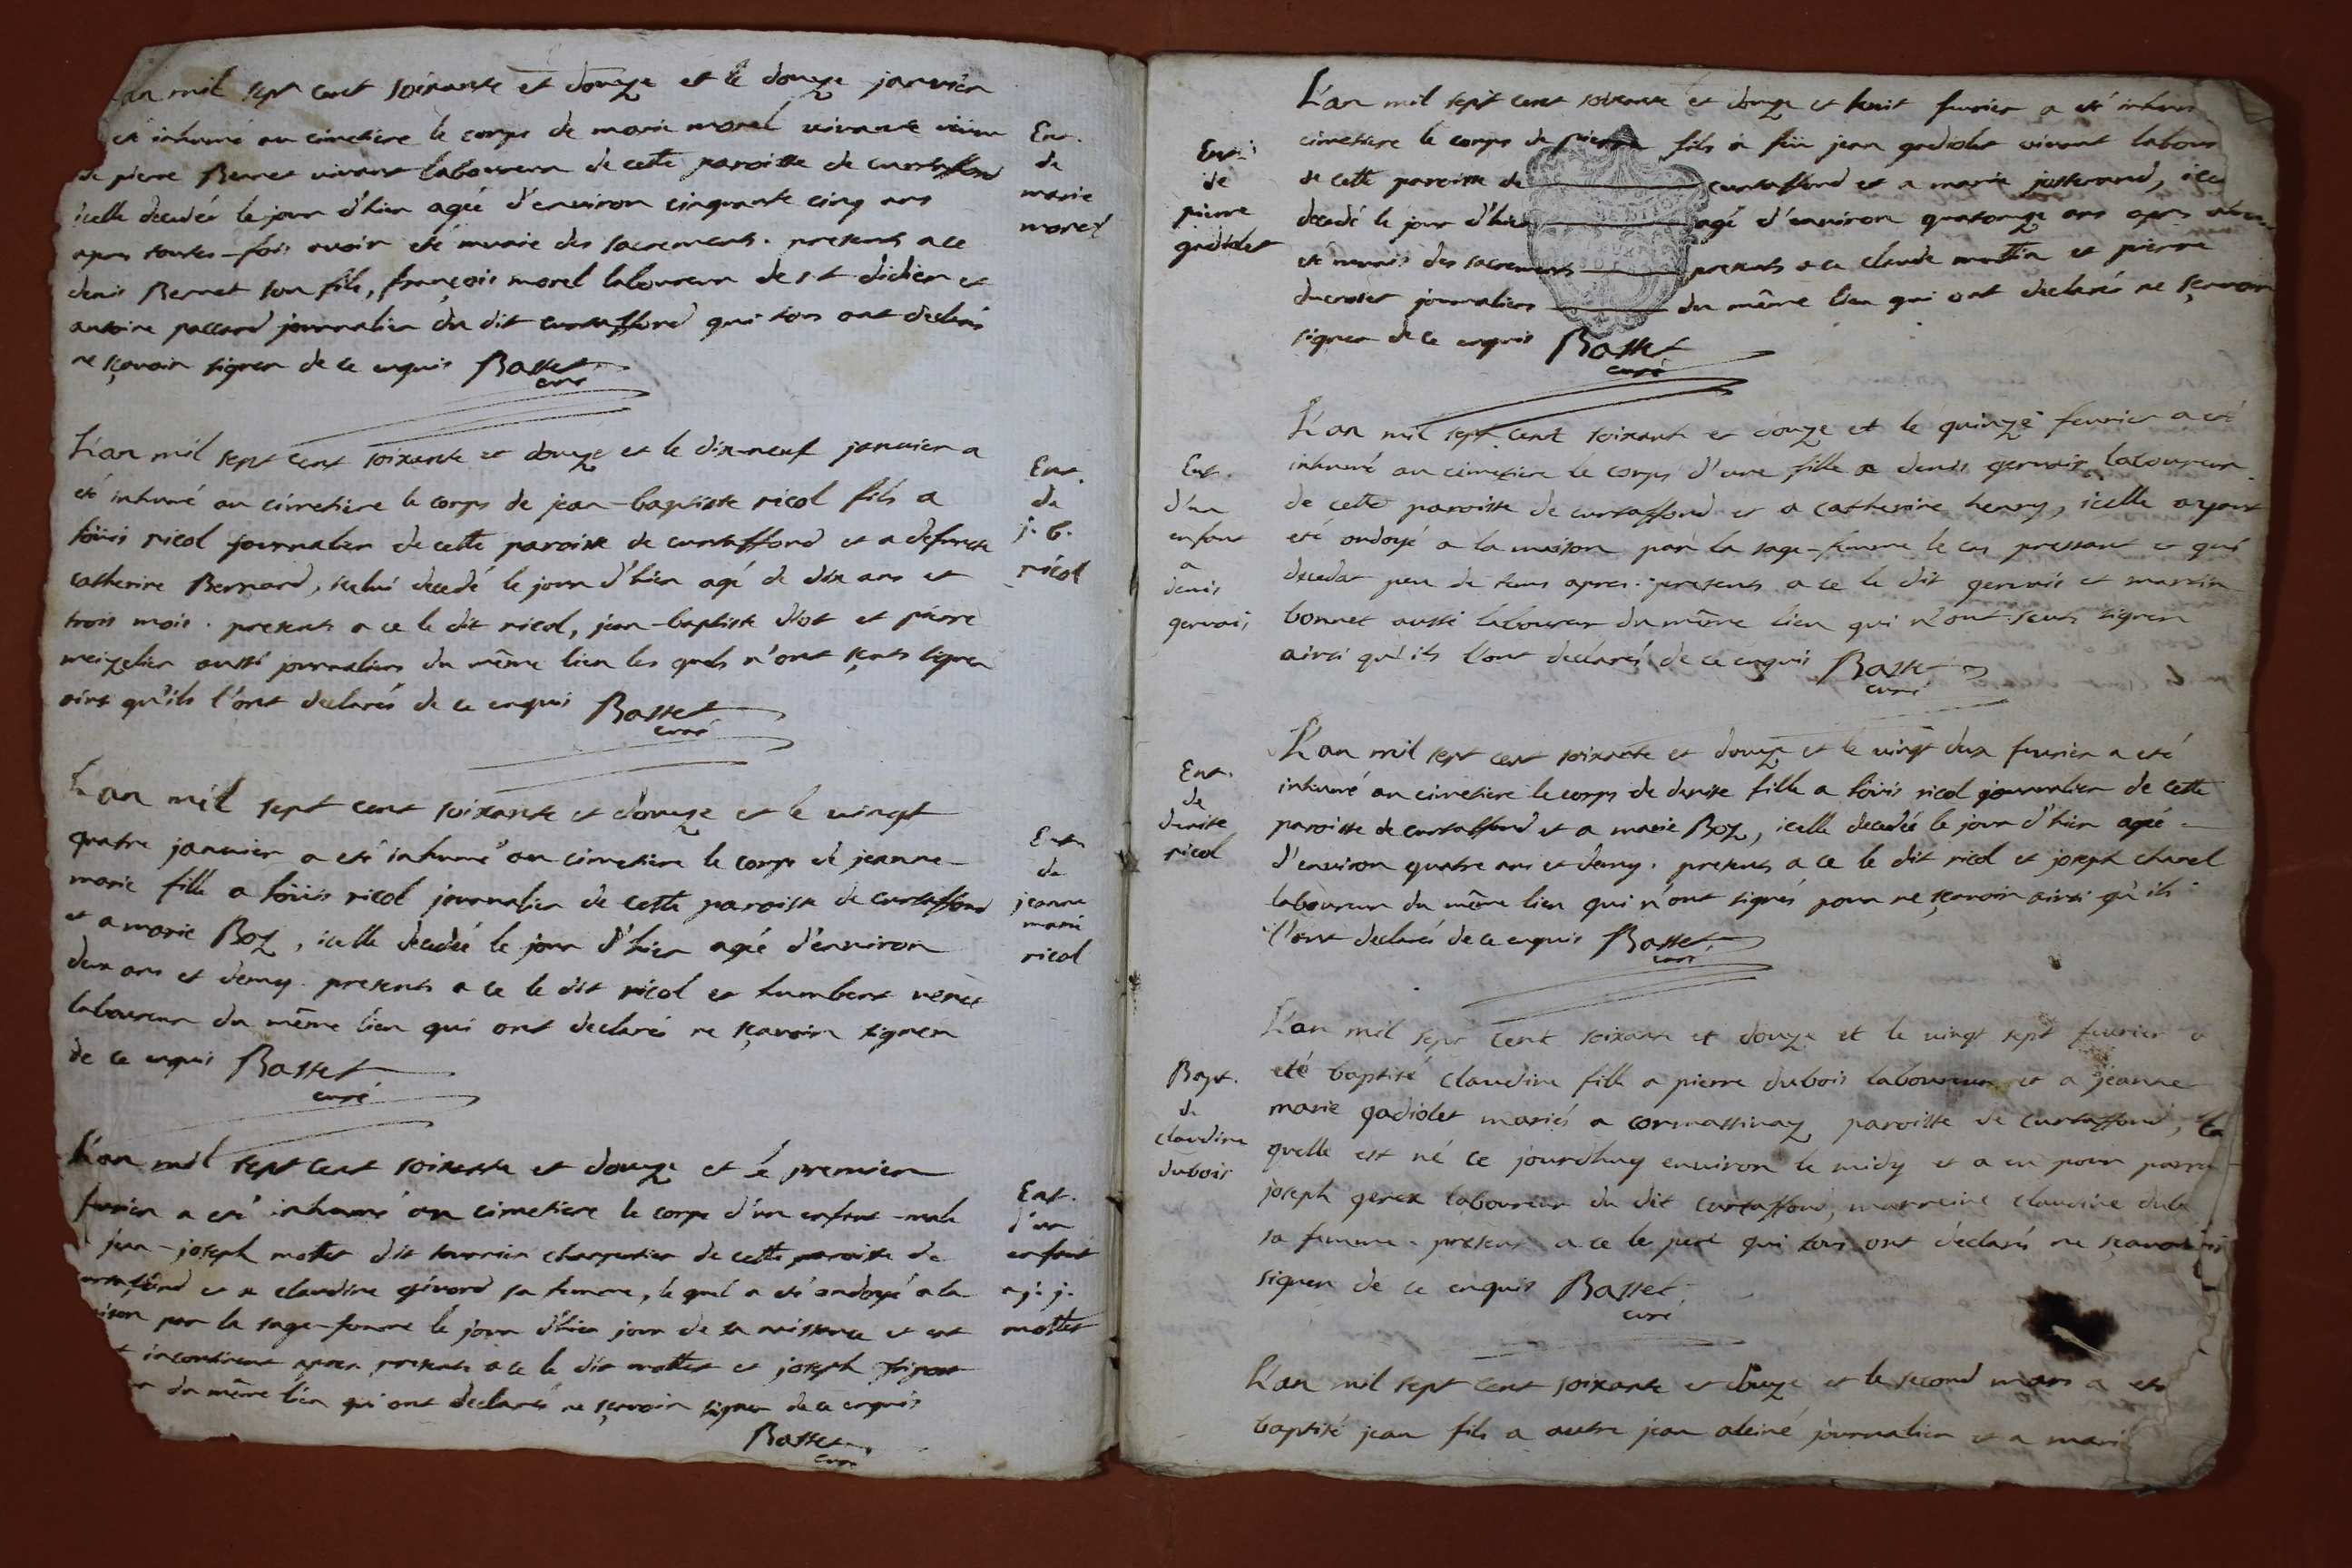 an mil sept cent soixante et douze et le douze janvier
eté inhumé au cimetiere le corps de marie morel vivante
de pierre Bernet vivant laboureur de cette paroisse de curtaffond
icelle decedée le jour d'hier agée d'environ cinquante cinq ans
apres toutes-fois avoir eté munie des sacrements. presents a ce
denis Bernet son fils, françois morel laboureur de st didier et
antoine paccard journalier du dit curtaffond qui tous ont declarés
ne sçavoir signer de ce enquis Basset
curé
Ent.
de
marie
morel
L'an mil sept cent soixante et douze et le dix-neuf janvier a
eté inhumé au cimetiere le corps de jean-baptiste nicol fils a
loüis nicol journalier de cette paroisse de curtaffond et a defuncte
catherine Bernard, icelui decedé le jour d'hier agé de dix ans et
trois mois. presents a ce le dit nicol, jean-baptiste et pierre
meizelier aussi journaliers du même lieu les quels n'ont sçeus signer
ainsi qu'ils l'ont declarés de ce enquis Basset
curé
Ent.
de
j. b.
nicol
L'an mil sept cent soixante et douze et le vingt
quatre janvier a eté inhumé au cimetiere le corps de jeanne-
marie fille a loüis nicol journalier de cette paroisse de curtaffond
et a marie Boz, icelle decedée le jour d'hier agée d'environ
deux ans et demy. presents a ce le dit nicol et humbert
laboureur du même lieu qui ont declarés ne sçavoir signer
de ce enquis Basset
curé
Ent.
de
jeanne
marie
nicol
L'an mil sept cent soixante et douze et le premier
fevrier a eté inhumé au cimetiere le corps d'un enfant-male
jean-joseph mottet dit tournier charpentier de cette paroisse de
et a claudine givord sa femme, le quel a eté ondoyé a la
par la sage-femme le jour d'hier jour de sa naissance et est
incontinent apres. presents a ce le dit mottet et joseph
du même lieu qui ont declarés ne sçavoir signer de ce enquis
Basset
curé
Ent.
d'un
enfant
a j. j.
mottet
L'an mil sept cent soixante et douze et huit fevrier a eté inhumé
cimetiere le corps de pierre fils a feu jean gadiolet vivant labour
de cette paroisse de curtaffond et a marie josserand, ice
decedé le jour d'hier agé d'environ quatorze ans apres
eté munis des sacrements presents a ce claude mottin et pierre
ducroset journaliers du même lieu qui ont declarés ne sçavoir
signer de ce enquis Basset
curé
Ent.
de
pierre
gadiolet
L'an mil sept cent soixante et douze et le quinze fevrier a eté
inhumé au cimetiere le corps d'une fille a denis gervais laboureur
de cette paroisse de curtaffond et a catherine henry, icelle ayant
eté ondoyé a la maison par la sage-femme le cas pressant et qui
decedat peu de tems apres. presents a ce le dit gervais et martin
bonnet aussi laboureur du même lieu qui n'ont seus signer
ainsi qu'ils l'ont declarés de ce enquis Basset
curé
Ent.
d'un
enfant
a
denis
gervais
L'an mil sept cent soixante et douze et le vingt deux fevrier a eté
inhumé au cimetiere le corps de denise fille a loüis nicol journalier de cette
paroisse de curtaffond et a marie Boz, icelle decedée le jour d'hier agée
d'environ quatre ans et demy. presents a ce le dit nicol et joseph charel
laboureur du même lieu qui n'ont signés pour ne sçavoir ainsi qu'ils
l'ont declarés de ce enquis Basset
curé
Ent.
de
denise
nicol
L'an mil sept cent soixante et douze et le vingt sept fevrier a
eté baptisé claudine fille a pierre dubois laboureur et a jeanne
marie gadiolet mariés a cormassinaz paroisse de curtaffond, la
quelle est né ce jourdhuy environ le midy et a eu pour parra
joseph gerex laboureur du dit curtaffond, marreine claudine dub
sa femme. present a ce le pere qui tous ont déclarés ne sçavoir
signer de ce enquis Basset
curé
Bapt.
de
claudine
dubois
L'an mil sept cent soixante et douze et le second mars a eté
baptisé jean fils a autre jean aleiné journalier et a marie